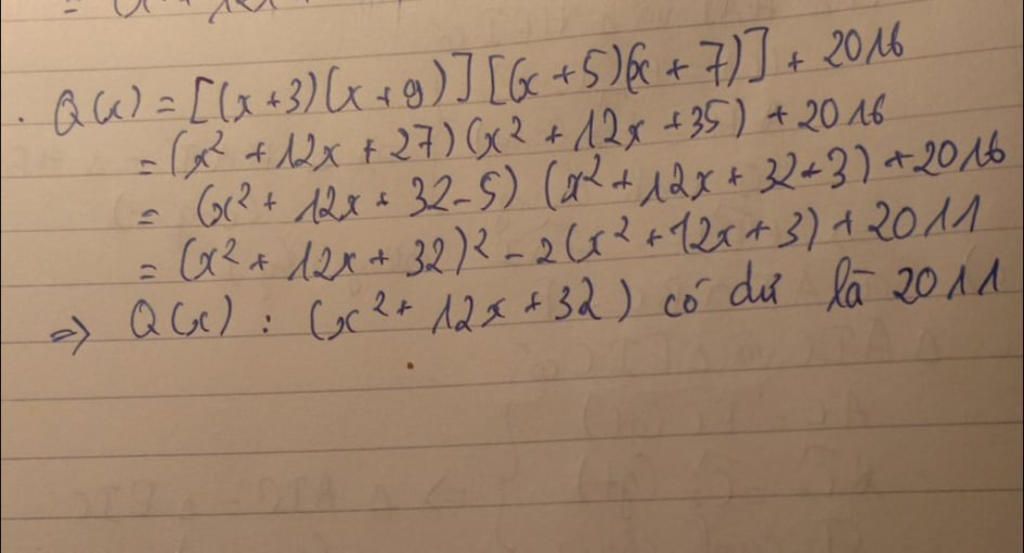 Q(x) = [(x+3)(x+9)][(x+5)(x+7)] + 2016
= (x² + 12x + 27)(x² + 12x + 35) + 2016
= (x² + 12x + 32 - 5) (x² + 12x + 32 + 3) + 2016
= (x² + 12x + 32)² - 2(x² + 12x + 3) + 2011
=> Q(x) : (x² + 12x + 32) có dư là 2011